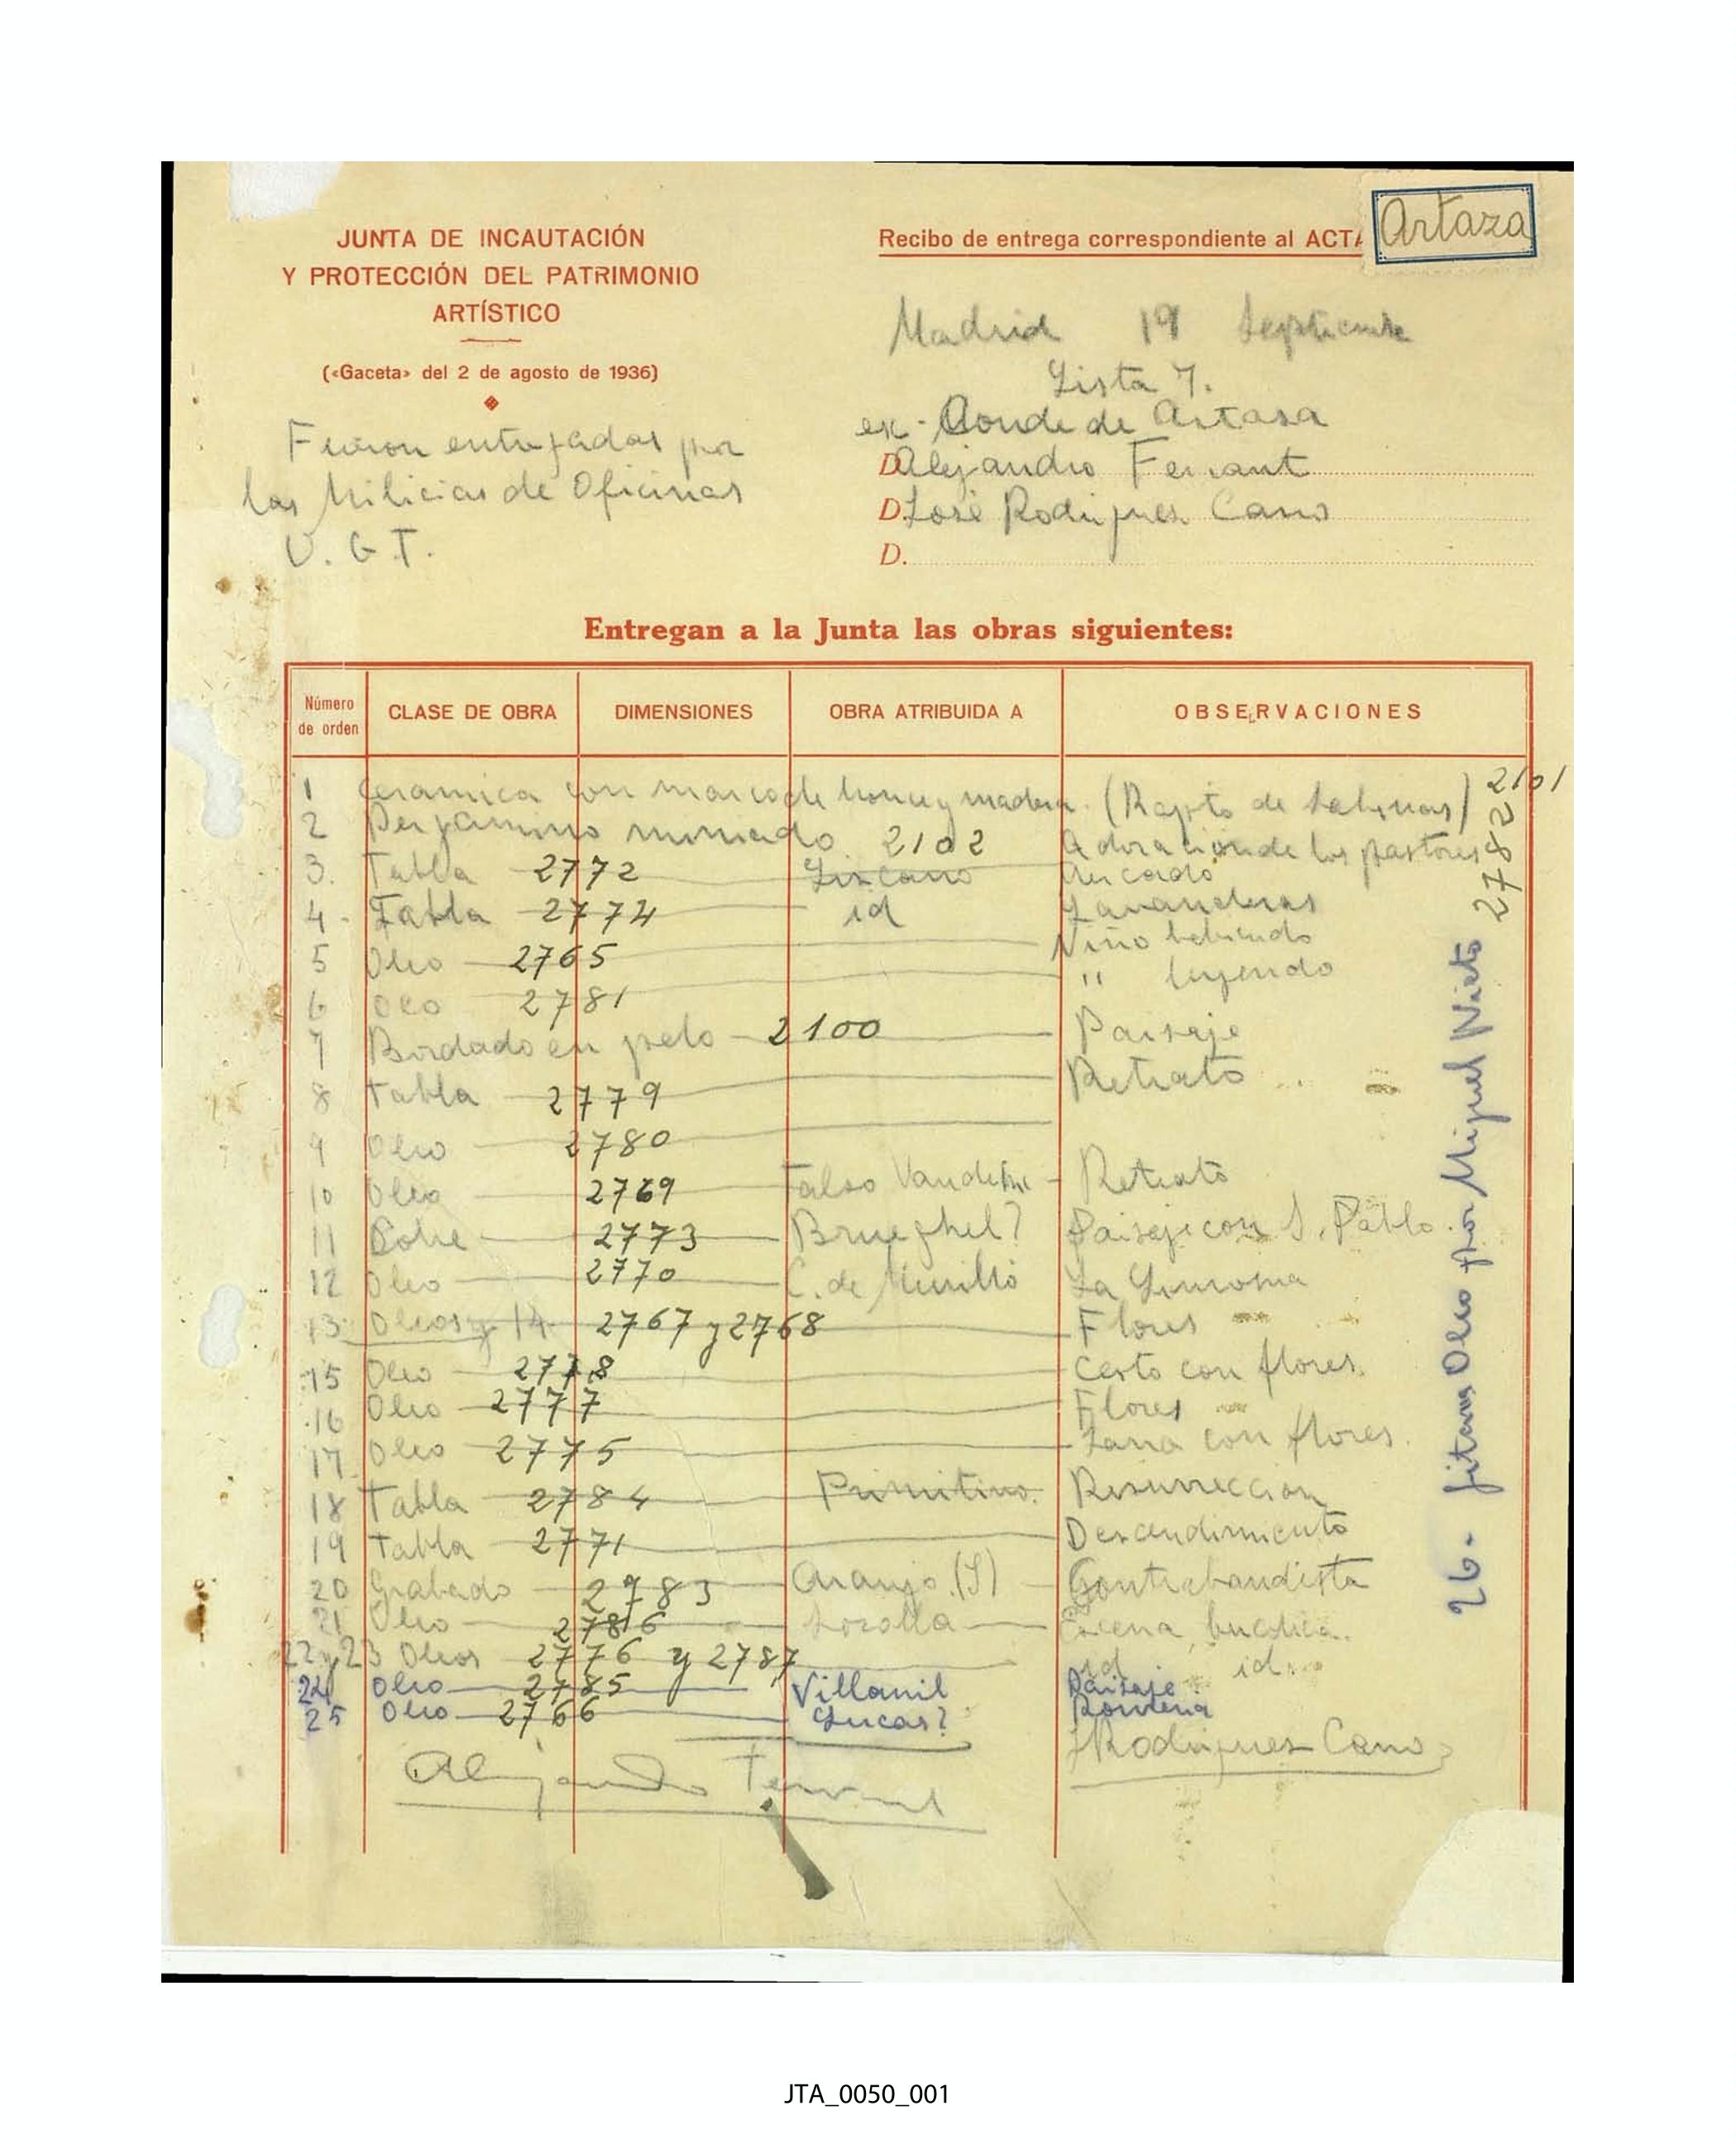 JUNTA DE INCAUTACIÓN
Y PROTECCIÓN DEL PATRIMONIO
ARTÍSTICO
(«Gaceta» del 2 de agosto de 1936)
Fueron entregados por
las Milicias de Oficinas
U. G. T.
Recibo de entrega correspondiente al ACTA
Artaza
Madrid 19 Septiembre
Lista 7.
ex-Conde de Artasa
D. Alejandro Ferrant
D. José Rodriguez Cano
D.
Entregan a la Junta las obras siguientes:
Número de orden CLASE DE OBRA DIMENSIONES OBRA ATRIBUIDA A OBSERVACIONES
1 Ceramica con marco de bronce y madera. (Rapto de Sabinas) 2101
2 Pergamino miniado 2102 Adoracion de los pastores
3. Tabla 2772 Lizcano Mercado
4. Tabla 2774 id Lavanderas
5 Oleo 2765 Niño bebiendo
6 Oleo 2781 " leyendo
7 Bordado en pelo 2100 Paisaje
8 Tabla 2779 Retrato
9 Oleo 2780
10 Oleo 2769 Falso Retrato
11 Cobre 2773 Brueghel? Paisaje con S. Pablo.
12 Oleo 2770 C. de Murillo La Limosna
13 Oleos y 14 2767 y 2768 Flores
15 Oleo 2778 Cesto con flores.
16 Oleo 2777 Flores
17 Oleo 2775 Jarra con flores.
18 Tabla 2784 Primitivo. Resurreccion
19 Tabla 2771 Descendimiento
20 Grabado 2783 Araujo. (S) Contrabandista
21 Oleo 2786 Sorolla Escena bucolica.
22 y 23 Oleos 2776 y 2787 id id.
24 Oleo 2785 Villamil Paisaje
25 Oleo 2766 Lucas? Romeria
26- Jitanas Oleo por Miguel Nieto 2782
Alejandro Ferrant
J Rodriguez Cano
JTA_0050_001